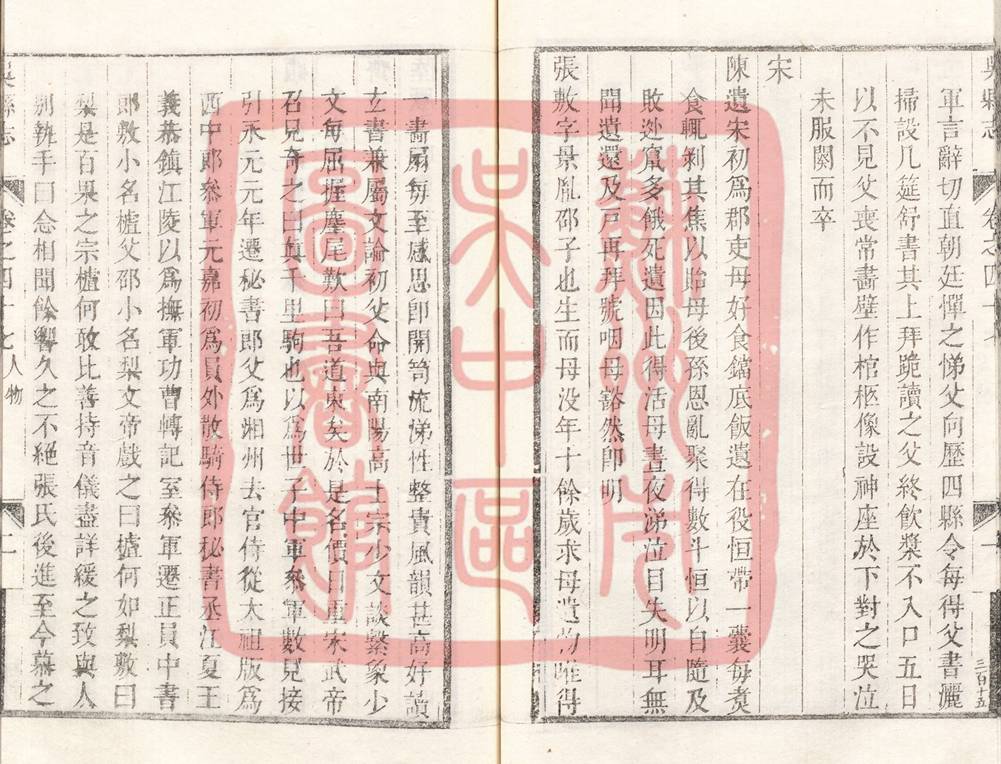 吳縣志
卷之四十七
一
三百十五
軍言辭切直朝廷憚之悌父向歷四縣令每得父書灑
掃設几筵舒書其上拜跪讀之父終飲漿不入口五日
以不見父喪常畫壁作棺柩像設神座於下對之哭泣
未服闋而卒
宋
陳遺宋初爲郡吏母好食鐺底飯遺在役恒帶一囊每煑
食輒剥其焦以貽母後孫恩亂聚得數斗恒以自隨及
敗逃竄多餓死遺因此得活母晝夜涕泣目失明耳無
聞遺還及戸再拜號咽母豁然卽明
張敷字景胤邵子也生而母没年十餘歲求母遺物唯得
一畫扇每至感思卽開笥流悌性整貴風韻甚高好讀
玄書兼屬文論初父命與南陽高士宗少文談繫象少
文每屈握麈尾歎曰吾道東矣於是名價日重宋武帝
召見奇之曰眞千里駒也以爲世子中軍叅軍數見接
引永元元年遷秘書郎父爲湘州去官侍從太祖版爲
西中郎叅軍元嘉初爲員外散騎侍郎秘書丞江夏王
義恭鎮江陵以爲撫軍功曹轉記室叅軍遷正員中書
郎敷小名樝父邵小名梨文帝戲之曰樝何如梨敷曰
梨是百果之宗樝何敢比善持音儀盡詳緩之致與人
別執手曰念相聞餘響久之不絕張氏後進至今慕之
吳縣志
卷之四十七人物
二
蘇州府
吳中區
圖書館